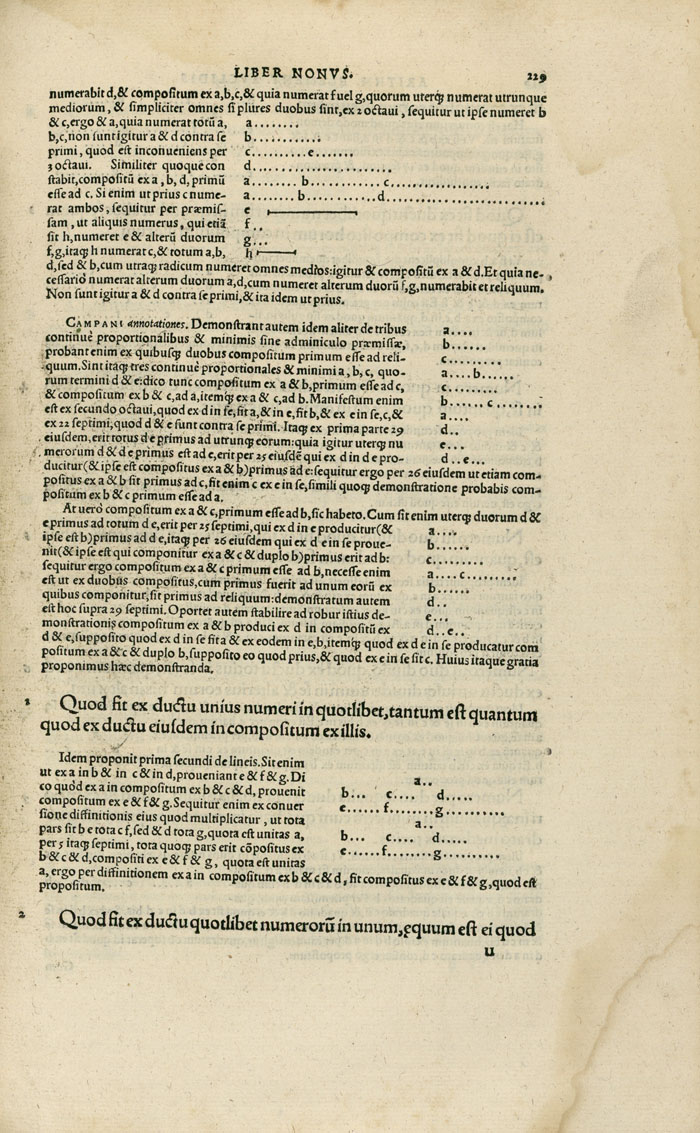 LIBER NONVS. 229
numerabit d,& compositum ex a,b,c,& quia numerat f uel g,quorum uterq3 numerat utrunque
mediorum, & simpliciter omnes si plures duobus sint,ex 2 octaui, sequitur ut ipse numeret b
& c,ergo & a,quia numerat totũ a,
b,c,non sunt igitur a & d contra se
primi, quod est inconueniens per
3 octaui. Similiter quoque con
stabit,compositũ ex a, b, d, primũ
esse ad c. Si enim ut prius c nume-
rat ambos, sequitur per præmis-
sam, ut aliquis numerus, qui etiã
sit h,numeret e & alterũ duorum
f,g,itaq3 h numerat c,& totum a,b,
a........
b............
c............e.......
d...........................
a........b............c..................
a........b............d...........................
e
f..
g...
h
d,sed & b,cum utraq3 radicum numeret omnes medios:igitur & compositũ ex a & d.Et quia ne-
cessario numerat alterum duorum a,d,cum numeret alterum duorũ f,g,numerabit et reliquum.
Non sunt igitur a & d contra se primi,& ita idem ut prius.
CAMPANI annotationes. Demonstrant autem idem aliter de tribus
continuè proportionalibus & minimis sine adminiculo præmissæ,
probant enim ex quibusq3 duobus compositum primum esse ad reli-
quum.Sint itaq3 tres continuè proportionales & minimi a, b, c, quo-
rum termini d & e:dico tunc compositum ex a & b,primum esse ad c,
& compositum ex b & c,ad a,itemq3 ex a & c,ad b. Manifestum enim
est ex secundo octaui,quod ex d in se,fit a,& in e,fit b,& ex e in se,c,&
ex 22 septimi,quod d & e sunt contra se primi. Itaq3 ex prima parte 29
eiusdem,erit totus d e primus ad utrunq3 eorum:quia igitur uterq3 nu
merorum d & d e primus est ad e,erit per 25 eiusdẽ qui ex d in d e pro-
ducitur(& ipse est compositus ex a & b)primus ad e:sequitur ergo per 26 eiusdem ut etiam com-
positus ex a & b sit primus ad c,fit enim c ex e in se,simili quoq3 demonstratione probabis com-
positum ex b & c primum esse ad a.
a....
b......
c.........
a....b......
c.........
b......c.........
a....
d..
e...
d..e...
At uerò compositum ex a & c,primum esse ad b,sic habeto. Cum sit enim uterq3 duorum d &
e primus ad totum d e,erit per 25 septimi,qui ex d in e producitur(&
ipse est b)primus ad d e,itaq3 per 26 eiusdem qui ex d e in se proue-
nit(& ipse est qui componitur ex a & c & duplo b)primus erit ad b:
sequitur ergo compositum ex a & c primum esse ad b,necesse enim
est ut ex duobus compositus,cum primus fuerit ad unum eorũ ex
quibus componitur,sit primus ad reliquum:demonstratum autem
est hoc supra 29 septimi. Oportet autem stabilire ad robur istius de-
monstrationis compositum ex a & b produci ex d in compositũ ex
a....
b......
c.........
a....c.........
b......
d..
e...
d..e..
d & e,supposito quod ex d in se fit a & ex eodem in e,b,itemq3 quod ex d e in se producatur com
positum ex a & c & duplo b,supposito eo quod prius,& quod ex e in se fit c. Huius itaque gratia
proponimus hæc demonstranda.
1 Quod fit ex ductu unius numeri in quotlibet,tantum est quantum
quod ex ductu eiusdem in compositum ex illis.
Idem proponit prima secundi de lineis.Sit enim
ut ex a in b & in c & in d,proueniant e & f & g. Di
co quod ex a in compositum ex b & c & d, prouenit
compositum ex e & f & g. Sequitur enim ex conuer
sione diffinitionis eius quod multiplicatur, ut tota
pars sit b e tota c f,sed & d tota g,quota est unitas a,
per 5 itaq3 septimi, tota quoq3 pars erit cõpositus ex
b & c & d,compositi ex e & f & g, quota est unitas
a..
b... c.... d.....
e......f........g..........
a..
b... c.... d.....
e......f........g..........
a, ergo per diffinitionem ex a in compositum ex b & c & d, fit compositus ex e & f & g,quod est
propositum.
2 Quod fit ex ductu quotlibet numerorũ in unum,ęquum est ei quod
u